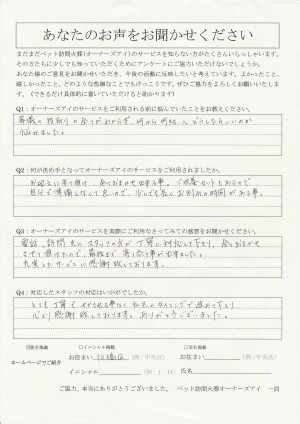 あなたのお声をお聞かせください
まだまだペット訪問火葬(オーナーズアイ)のサービスを知らない方がたくさんいらっしゃいます。
その方たちに少しでも知っていただくためにアンケートにご協力いただけないでしょうか。
あなた様のご意見をお聞かせいただき、今後の活動に反映したいと考えています。よかったこと、
嬉しかったこと、どのような些細なことでもけっこうです。ぜひご協力をよろしくお願いいたします。(できるだけ具体的に書いていただけると助かります)
Q1:オーナーズアイのサービスをご利用される前に悩んでいたことをお教えください。
葬儀の段取りの全てがわからず、何から何時へどうしたらいいのか
悩みました。
Q2:何が決め手となってオーナーズアイのサービスをご利用されましたか。
お迎えに来て頂け、全ておまかせ出来る事。ご供養セットもあるので
自分で準備しなくて良いので、少しでも長くお別れの時間がある事。
Q3:オーナーズアイのサービスを実際にご利用なさってみての感想をお聞かせください。
電話、訪問共にスタッフの方が丁寧に対応して下さり、全ておまかせ
させて頂けたので、最後まで寄り添う事が出来ました。
充実したサービスに感謝致しております。
Q4:対応したスタッフの対応はいかがでしたか。
とても丁寧でせかされる事なく私共のタイミングで進めて下さり
心より感謝致しております。ありがとうございました。
匿名掲載
イニシャル掲載
実名掲載
ホームページでご紹介
お住まい 稲毛区 (例:中央区)
お住まい (例:中央区)
イニシャル (例:J.H)
氏名
ご協力、本当にありがとうございました。 ペット訪問火葬オーナーズアイ 一同